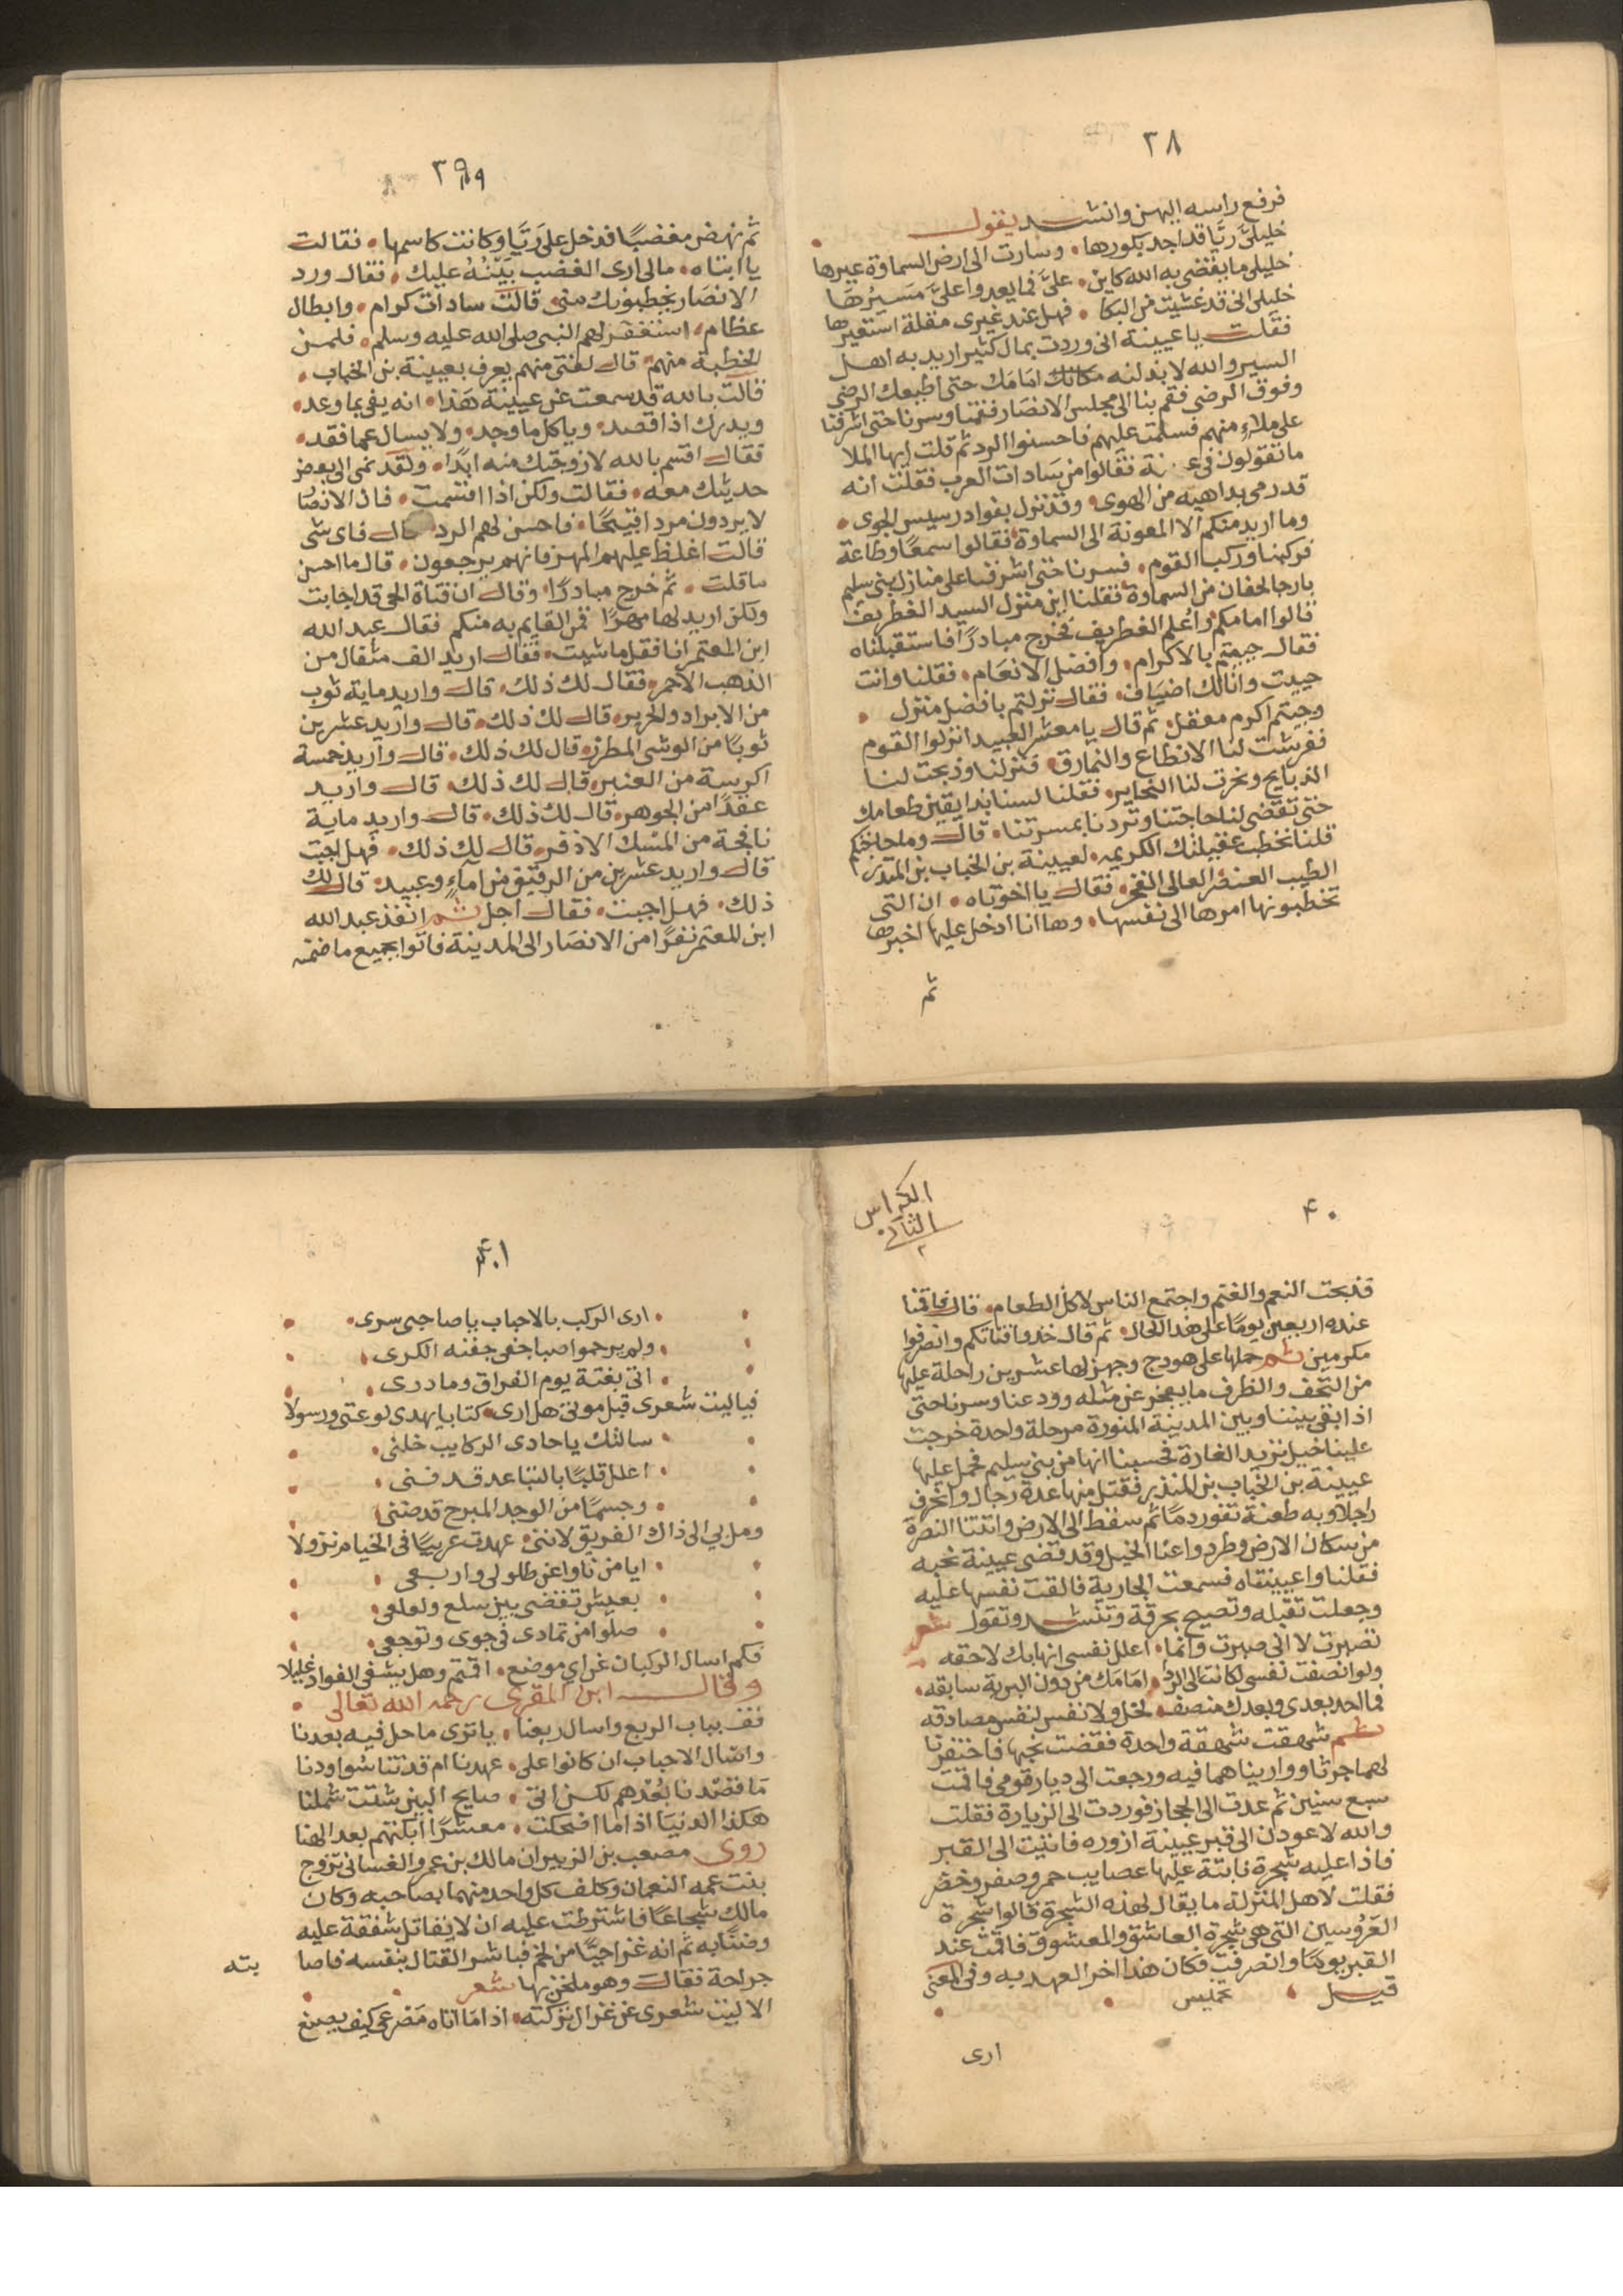 ٣٨
فرفع راسه اليهن وانشد يقول
خليلىّ ريّا قد اجد بكورها • وسارت الى ارض السماوة عيرها
خليلى ما يقضى به الله كاين • علىّ فما يعدوا علىّ مسيرُها
خليلى انى قد غشيت من البكا • فهل عند غيرى مقلة استعيرها
فقلت يا عيينة انى وردت بمال كثير اريد به اهل
السير والله لابذلنه امامك حتى اطبعك الرضى
وفوق الرضى فقم بنا الى مجلس الانصار فقمنا وسرنا حتى اشرفنا
على ملاءٍ منهم فسلمت عليهم فاحسنوا الرد ثم قلت ايها الملا
ما تقولون فى فقالوا من سادات العرب فقلت انه
قد رمى بداهية من الهوى • وقد نزل بفوادر سيس الجوى •
وما اريد منكم الا المعونة الى السماوة فقالوا سمعًا وطاعة
فركبنا وركب القوم • فسرنا حتى اشرفنا على منازل بنى سليم
فقلنا اين منزل السيد الغطريف
قالوا امامكم • فخرج مبادرًا فاستقبلناه
فقال حييتم بالاكرام • وافضل الانعام • فقلنا وانت
حييت وانا لك اضياف • فقال نزلتم بافضل منزل •
وجيتم اكرم معقل • ثم قال يا معشر العبيد انزلوا القوم
ففرشت لنا الانطاع والنمارق • فنزلنا وذبحت لنا
الذبايح ونحرت لنا النحاير • فقلنا لسنا بذايقين طعامك
حتى تقضى لنا حاجتنا وتردنا بمسرتنا • قال وما حاجتكم
قلنا نخطب عقيلتك الكريمه • لعيينة بن الخباب بن المنذر
الطيب العنصر العالى الفخر • فقال يا اخوتاه • ان التى
تخطبونها امرها الى نفسها • وها انا ادخل عليها اخبرها
ثم
٣٩
ثم نهض مغضبًا فدخل على ريّا وكانت كاسمها • فقالت
يا ابتاه • مالى ارى الغضب بيّنهُ عليك • فقال ورد
الانصار يخطبونك منى • قالت سادات كرام • وابطال
عظام • استغفر لهم النبى صلى الله عليه وسلم • فلمن
الخطبة منهم • قال لفتى منهم يعرف بعيينة بن الخباب •
قالت بالله قد سمعت عن عيينة هذا • انه يفى بما وعد •
ويدرك اذا قصد • وياكل ما وجد • ولا يسال عما فقد •
فقال اقسم بالله لازوجتك منه ابدًا • ولقد نمى الى بعض
حديثك معه • فقالت ولكن اذا اقسمت • فان الانصا
لا يردون مردا قبيحًا • فاحسن لهم الرد قال فاى شى
قالت اغلظ عليهم المهر فانهم يرجعون • قال ما احسن
ما قلت • ثم خرج مبادرًا • وقال ان فتاة الحى قد اجابت
ولكن اريد لها مهرًا فمن القايم به منكم فقال عبد الله
ابن المعتمر انا فقل ما شيت • فقال اريد الف مثقال من
الذهب الاحمر • فقال لك ذلك • قال واريد ماية ثوب
من الابراد والحرير • قال لك ذلك • قال واريد عشرين
ثوبًا من الوشى المطرز • قال لك ذلك • قال واريد خمسة
اكرسة من العنبر • قال لك ذلك • قال واريد
عقدًا من الجوهر • قال لك ذلك • قال واريد ماية
نافجة من المسك الاذفر • قال لك ذلك • فهل اجبت
قال واريد عشرين من الرقيق من اماءٍ وعبيد • قال لك
ذلك • فهل اجبت • فقال اجل ثم انفذ عبد الله
ابن المعتمر نفرًا من الانصار الى المدينة فاتوا بجميع ما ضمنه
٤٠
الكراس
الثانى
٢
فذبحت النعم والغنم واجتمع الناس لاكل الطعام • قال فاقمنا
عنده اربعين يومًا على هذا الحال • ثم قال خذوا فتاتكم وانصرفوا
مكرمين ثم حملها على هودج وجهز لها عشرين راحلة عليها
من التحف والظرف ما يعجز عن مثله وودعنا وسرنا حتى
اذا بقى بيننا وبين المدينة المنورة مرحلة واحدة خرجت
علينا خيل تريد الغارة فحسبنا انها من بنى سليم فحمل عليها
عيينة بن الخباب بن المنذر فقتل منها عدة رجال وانحرف
راجلا وبه طعنة تفور دمًا ثم سقط الى الارض واتتنا النصرة
من سكان الارض وطردوا عنا الخيل وقد قضى عيينة نحبه
فقلنا واعيينتاه فسمعت الجارية فالقت نفسها عليه
وجعلت تقبله وتصيح بحرقة وتنشد وتقول شعر
تصبرت لا انى صبرت وانما • اعلل نفسى انها بك لاحقه
ولو انصفت نفسى لكانت الى الردا • امامك من دون البرية سابقه •
فما احد بعدى وبعدك منصف • لخل ولا نفس لنفس مصادقه
ثم شهقت شهقة واحدة فقضت نحبها فاحتفرنا
لهما جرثا وواريناهما فيه ورجعت الى ديار قومى فاقمت
سبع سنين ثم عدت الى الحجاز فوردت الى الزيارة فقلت
والله لاعودن الى قبر عيينة ازوره فاتيت الى القبر
فاذا عليه شجرة نابتة عليها عصايب حمر وصفر وخضر
فقلت لاهل المنزلة ما يقال لهذه الشجرة قالوا شجرة
العروسين التى هى شجرة العاشق والمعشوق فاقمت عند
القبر يومًا وانصرفت فكان هذا اخر العهد به وفى المعنى
قيل • تخميس
ارى
٤١
• ارى الركب بالاحباب يا صاحبى سرى •
• ولم يرحموا صبا جفى جفنه الكرى •
• اتى بغتة يوم الفراق وما درى •
فيا ليت شعرى قبل موتى هل ارى • كتابا يهدى لوعتى ورسولا
• سالتك يا حادى الركايب خلنى •
• اعلل قلبًا بالتباعد قد فنى •
• وجسمًا من الوجد المبرح قد ضنى
ومل بى الى ذاك الفريق لاننى • عهدت عريبًا فى الخيام نزولا
• ايا من ناوا عن طلولى واربعى •
• بعيش تقضى بين سلع ولعلعى •
• صلوا من تمادى فى جوى وتوجعى •
فكم اسال الركبان عن اى موضع • اقمتم وهل يشفى الفواد غليلا
وقال ابن المقرى رحمه الله تعالى •
قف بباب الربع واسال ربعنا • يا ترى ما حل فيه بعدنا
واسال الاحباب ان كانوا على • عهدنا ام قد تناسوا ودنا
ما قصدنا بُعْدهم لكن اتى • صايح البين شتت شملنا
هكذا الدنيا اذا ما اضحكت • معشرًا ابكتهم بعد الهنا
روى مصعب بن الزبير ان مالك بن عمرو الغسانى تزوج
بنت عمه النعمان وكلف كل واحد منهما بصاحبه وكان
مالك شجاعًا فاشترطت عليه ان لا يقاتل شفقة عليه
وضنًا به ثم انه غزا حيًا من لخم فباشر القتال بنفسه فاصا بته
جراحة فقال وهو ملخن بها شعر
الا ليت شعرى عن غزال تركته • اذا ما اتاه مصرعى كيف يصنع